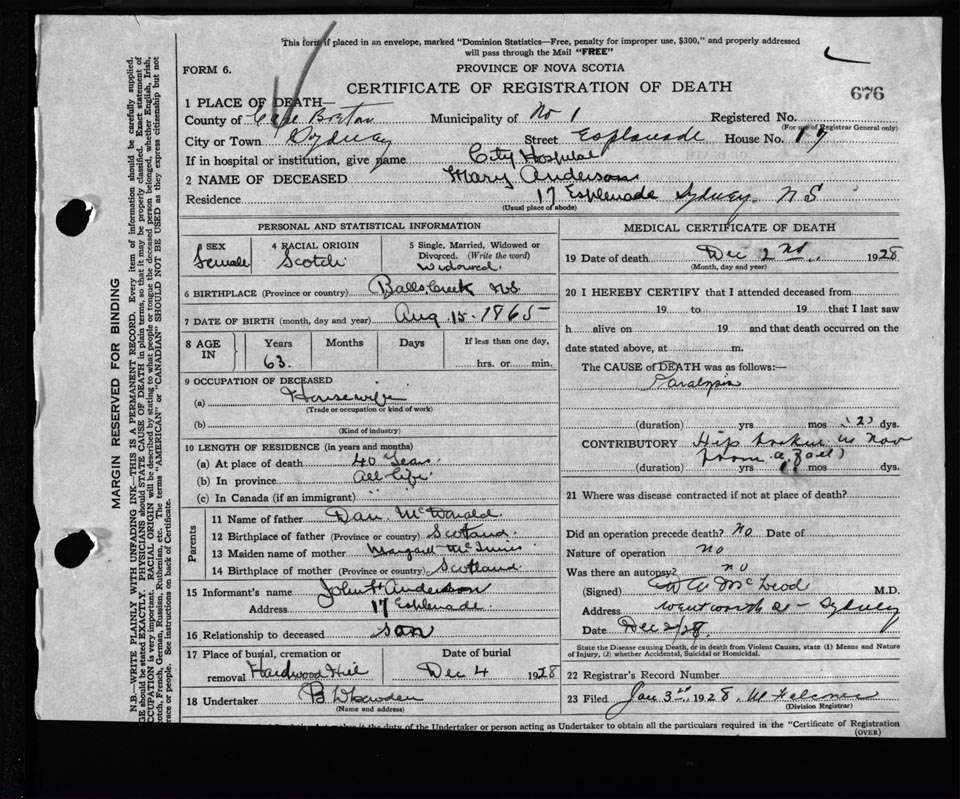 This form if placed in an envelope, marked "Dominion Statistics—Free, penalty for improper use, $300," and properly addressed
will pass through the Mail "FREE"
FORM 6.
PROVINCE OF NOVA SCOTIA
CERTIFICATE OF REGISTRATION OF DEATH
676
1 PLACE OF DEATH—
County of Cape Breton Municipality of No 1 Registered No.
(For use of Registrar General only)
City or Town Sydney Street Esplanade House No. 17
If in hospital or institution, give name City Hospital
2 NAME OF DECEASED Mary Anderson
Residence 17 Esplenade Sydney. N S
(Usual place of abode)
PERSONAL AND STATISTICAL INFORMATION
3 SEX Female
4 RACIAL ORIGIN Scotch
5 Single, Married, Widowed or
Divorced. (Write the word)
Widowed.
6 BIRTHPLACE (Province or country) Balls Creek N.S.
7 DATE OF BIRTH (month, day and year) Aug. 15. 1865
8 AGE IN Years 63. Months Days If less than one day,
hrs. or min.
9 OCCUPATION OF DECEASED
(a) Housewife
(Trade or occupation or kind of work)
(b)
(Kind of industry)
10 LENGTH OF RESIDENCE (in years and months)
(a) At place of death 40 Years
(b) In province all life
(c) In Canada (if an immigrant)
Parents
11 Name of father Dan. McDonald.
12 Birthplace of father (Province or country) Scotland.
13 Maiden name of mother Margaret McInnis
14 Birthplace of mother (Province or country) Scotland.
15 Informant's name John H Anderson
Address 17 Esplenade.
16 Relationship to deceased son
17 Place of burial, cremation or
removal Hardwood Hill
Date of burial
Dec 4 1928
18 Undertaker
(Name and address)
MEDICAL CERTIFICATE OF DEATH
19 Date of death Dec 2nd. 1928
(Month, day and year)
20 I HEREBY CERTIFY that I attended deceased from
19 to 19 that I last saw
h alive on 19 and that death occurred on the
date stated above, at m.
The CAUSE of DEATH was as follows:—
Paralysis
(duration) yrs. mos (2) dys.
CONTRIBUTORY Hip broken in Nov
from a fall)
(duration) yrs mos dys.
21 Where was disease contracted if not at place of death?
Did an operation precede death? No Date of
Nature of operation no
Was there an autopsy? no
(Signed) McLeod M.D.
Address Wentworth St - Sydney
Date Dec 2/28.
State the Disease causing Death, or in death from Violent Causes, state (1) Means and Nature
of Injury, (2) whether Accidental, Suicidal or Homicidal.
22 Registrar's Record Number
23 Filed Jan 3rd, 1928. Falconer
(Division Registrar)
the duty of the Undertaker or person acting as Undertaker to obtain all the particulars required in the "Certificate of Registration
(OVER)
MARGIN RESERVED FOR BINDING
N.B.—WRITE PLAINLY WITH UNFADING INK—THIS IS A PERMANENT RECORD. Every item of information should be carefully supplied.
AGE should be stated EXACTLY. PHYSICIANS should STATE CAUSE OF DEATH in plain terms, so that it may be properly classified. Exact statement of
OCCUPATION is very important. RACIAL ORIGIN will be described by stating to what people or tongue the deceased person belonged, whether English, Irish,
Scotch, French, German, Russian, Ruthenian, etc. The terms "AMERICAN" or "CANADIAN" SHOULD NOT BE USED as they express citizenship but not
race or people. See instructions on back of Certificate.